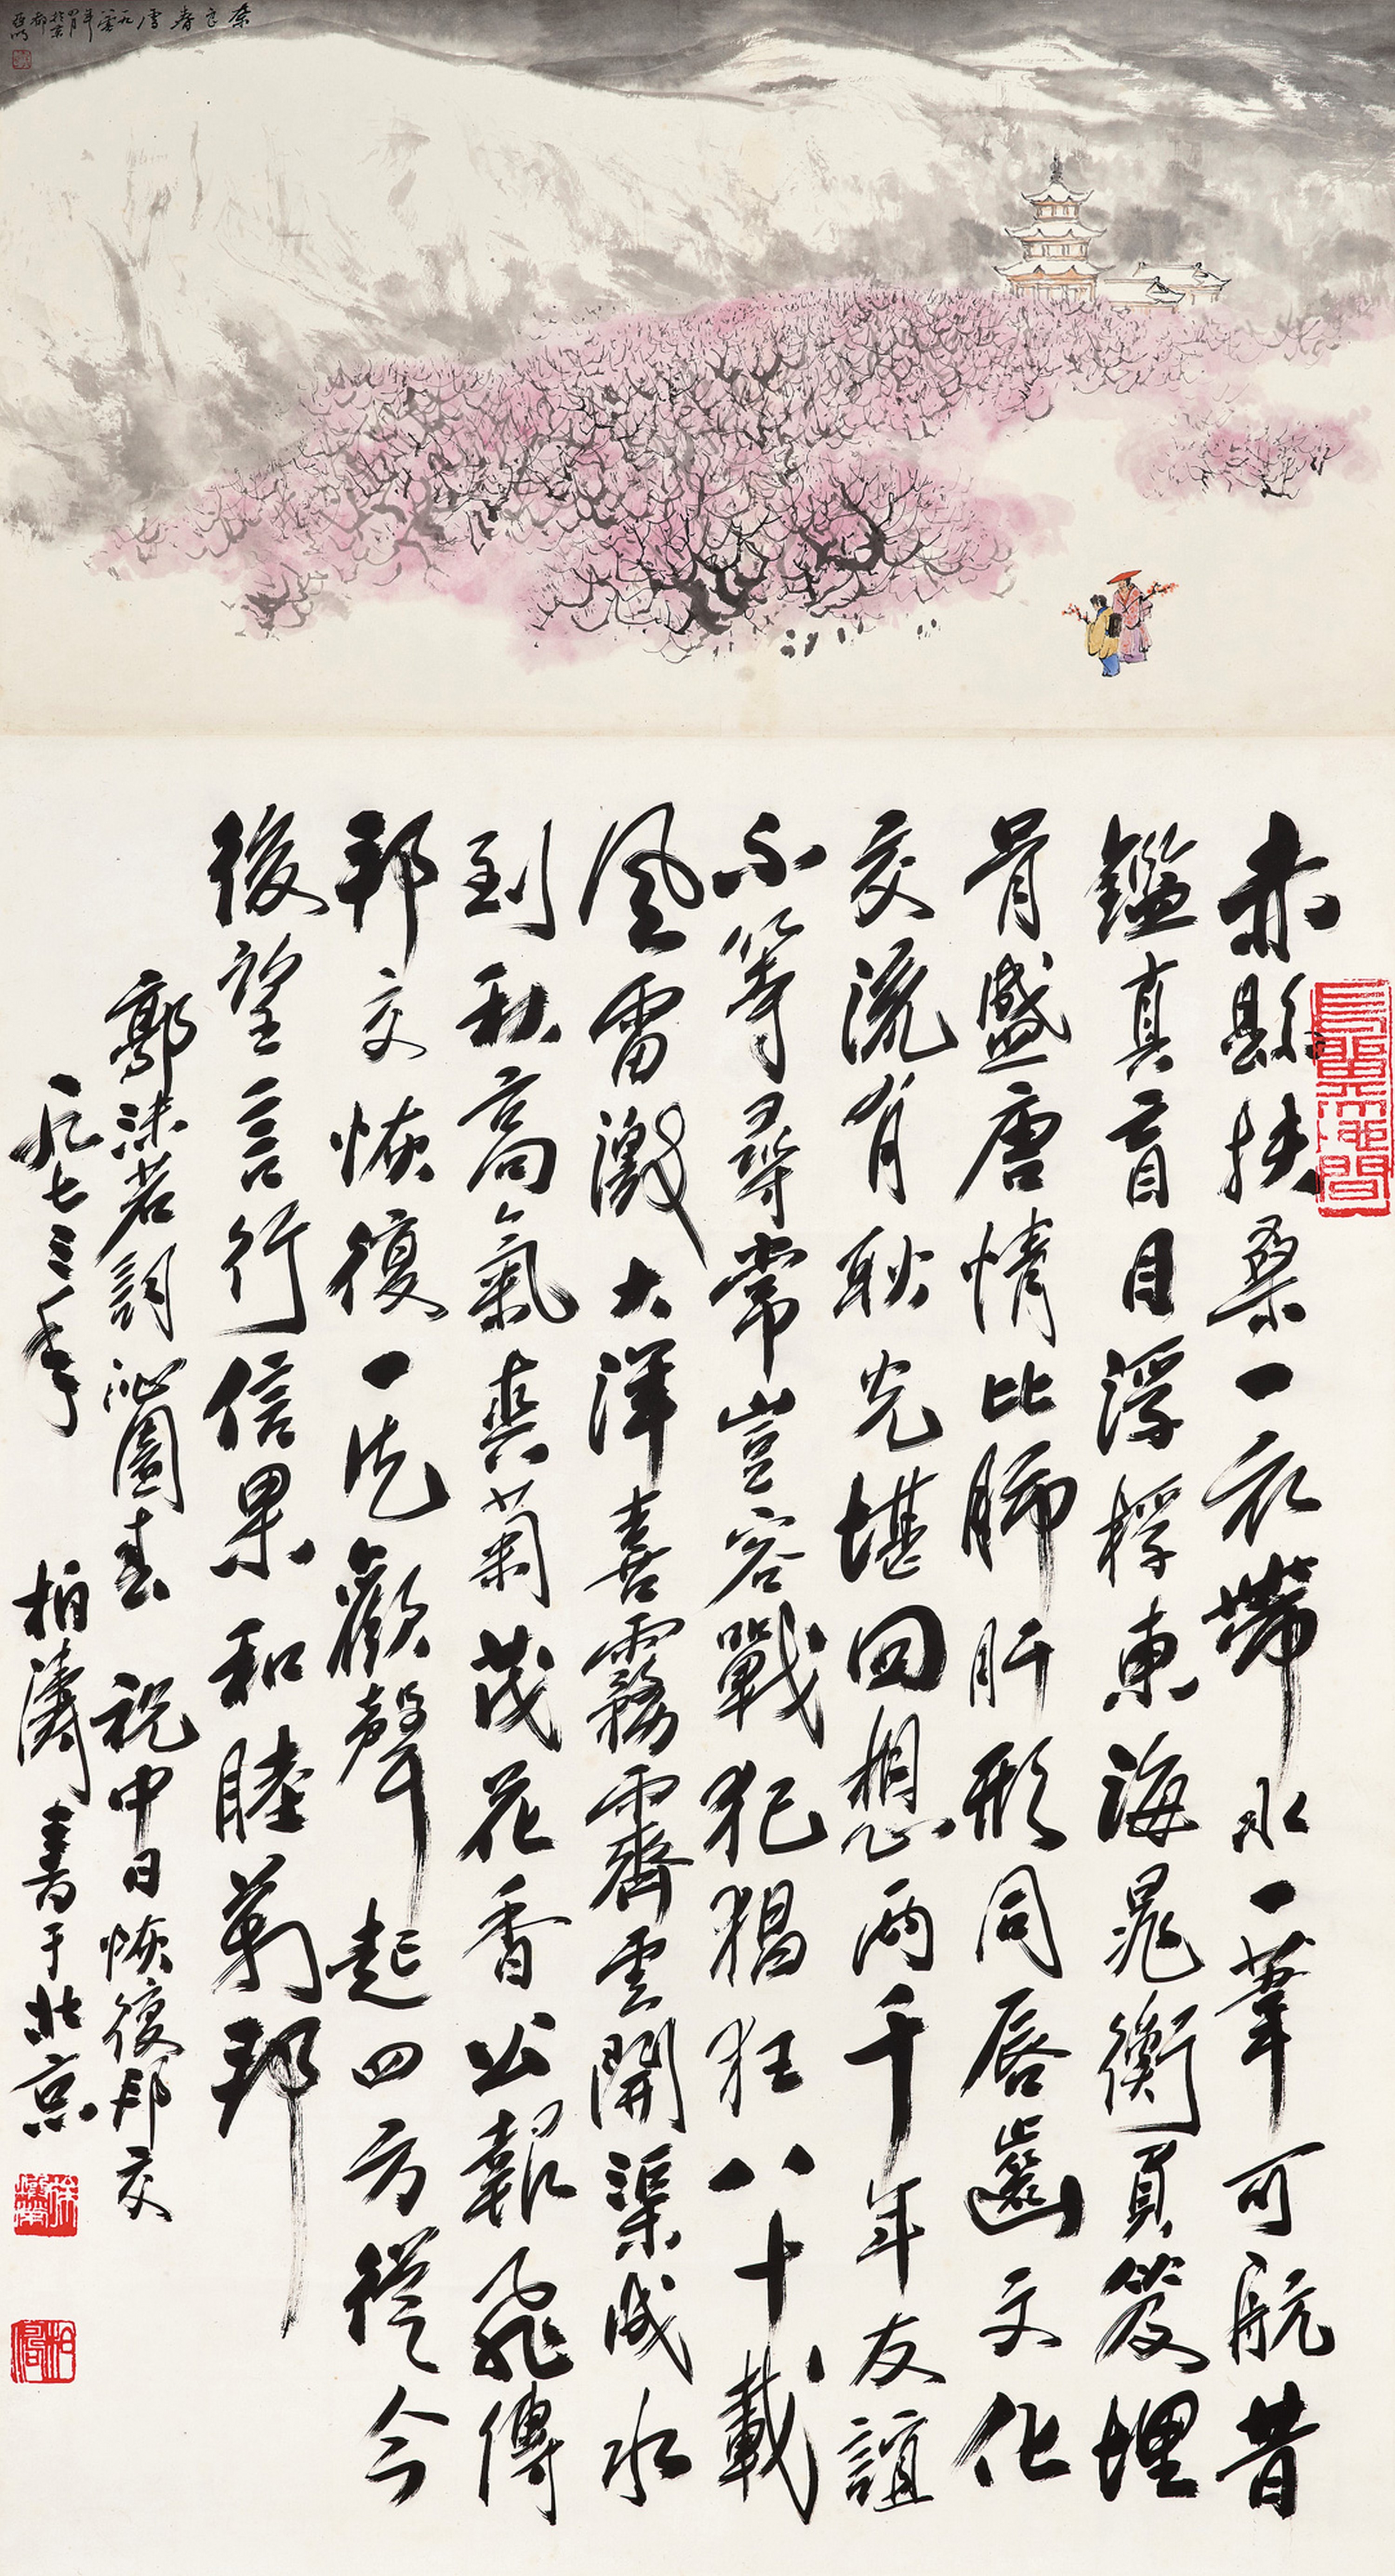 奈良春雪
年四月於京都亞明
赤縣扶桑一衣帶水一葦可航昔
鑑真盲目浮桴東海晁衡負笈埋
骨盛唐情比肺肝形同唇齒文化
交流有耿光堪回想兩千年友誼
不等尋常豈容戰犯猖狂八十載
風雷激大洋喜霧霽雲開渠成水
到秋高氣爽菊茂花香公報飛傳
邦交恢復一片歡聲起四方從今
後望言行信果和睦萬邦
郭沫若詞沁園春 祝中日恢復邦交
一九七三年 柏濤書于北京